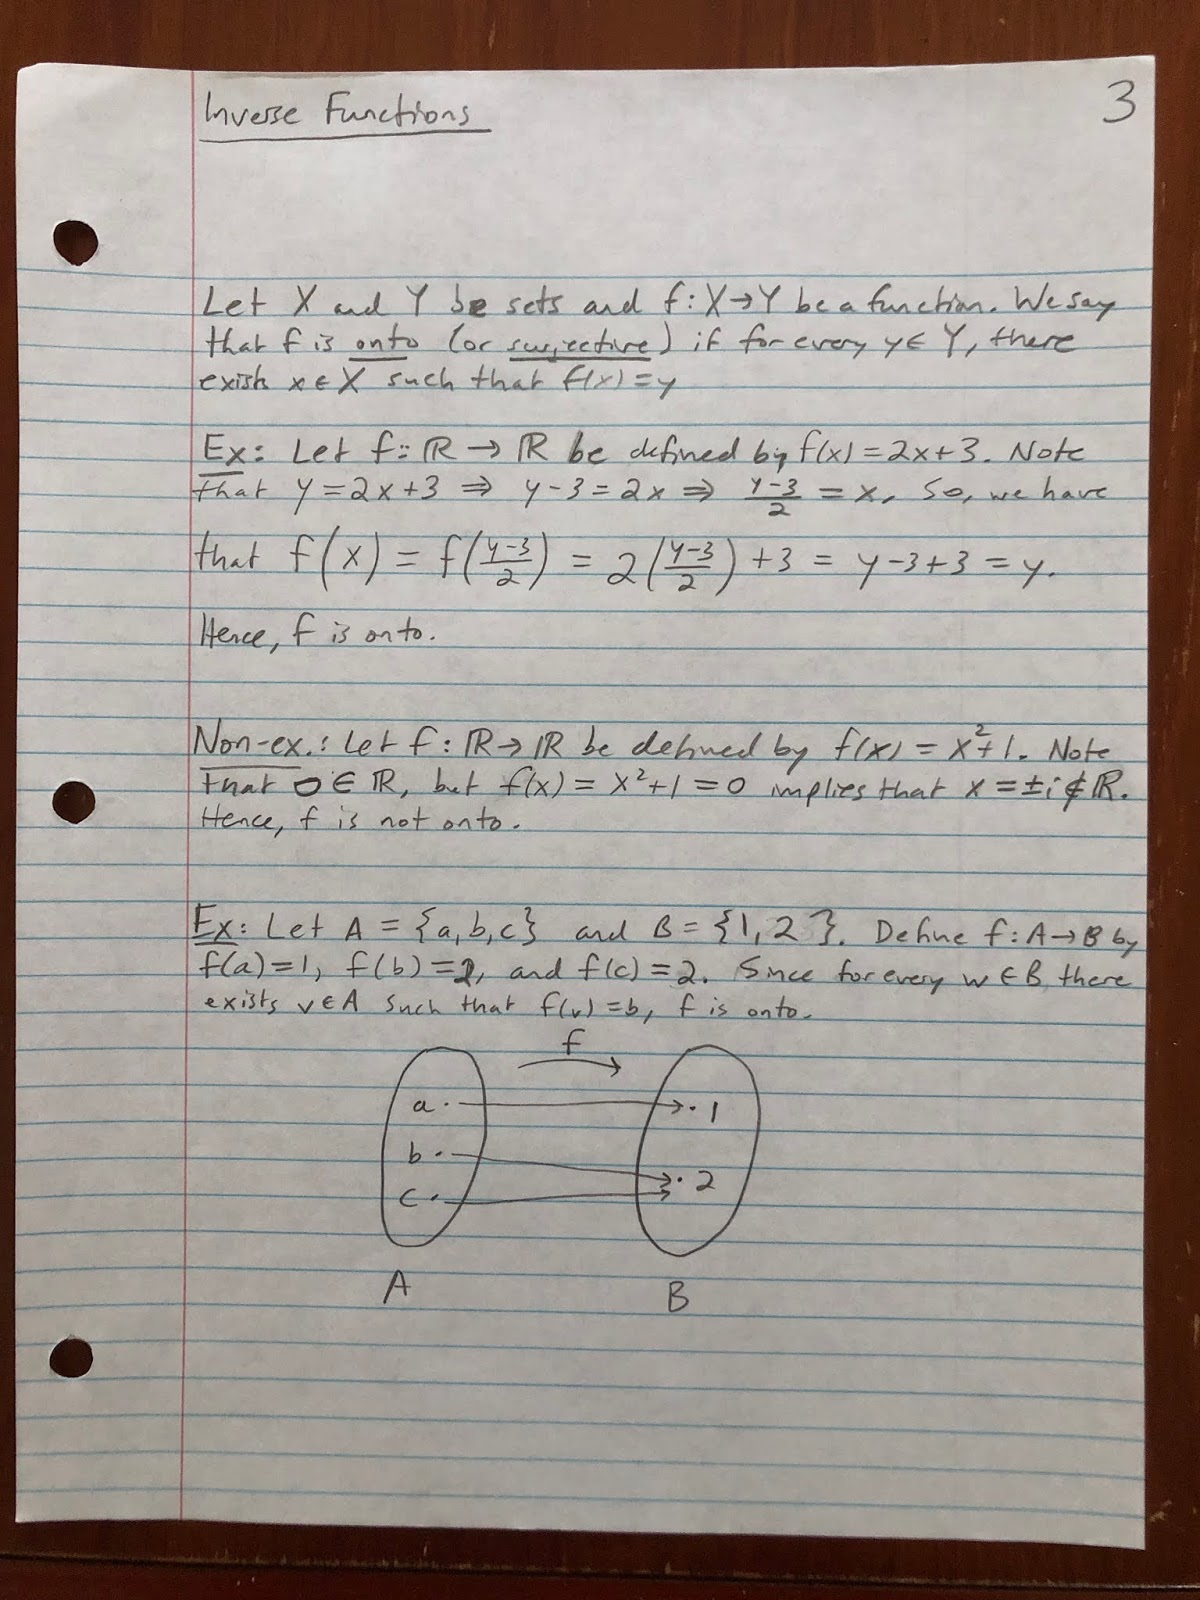 Inverse Functions
3
Let X and Y be sets and f: X→Y be a function. We say
that f is onto (or surjective) if for every y∈Y, there
exists x∈X such that f(x)=y
Ex: Let f: ℝ → ℝ be defined by f(x)=2x+3. Note
that y=2x+3 ⇒ y-3=2x ⇒ (y-3)/2 = x. So, we have
that f(x) = f((y-3)/2) = 2((y-3)/2)+3 = y-3+3 = y.
Hence, f is onto.
Non-ex.: Let f: ℝ→ℝ be defined by f(x) = x²+1. Note
that 0∈ℝ, but f(x)=x²+1=0 implies that x=±i∉ℝ.
Hence, f is not onto.
Ex: Let A = {a,b,c} and B={1,2}. Define f: A→B by
f(a)=1, f(b)=2, and f(c)=2. Since for every w∈B there
exists v∈A such that f(v)=b, f is onto.
f
a · · 1
b · · 2
c ·
A B